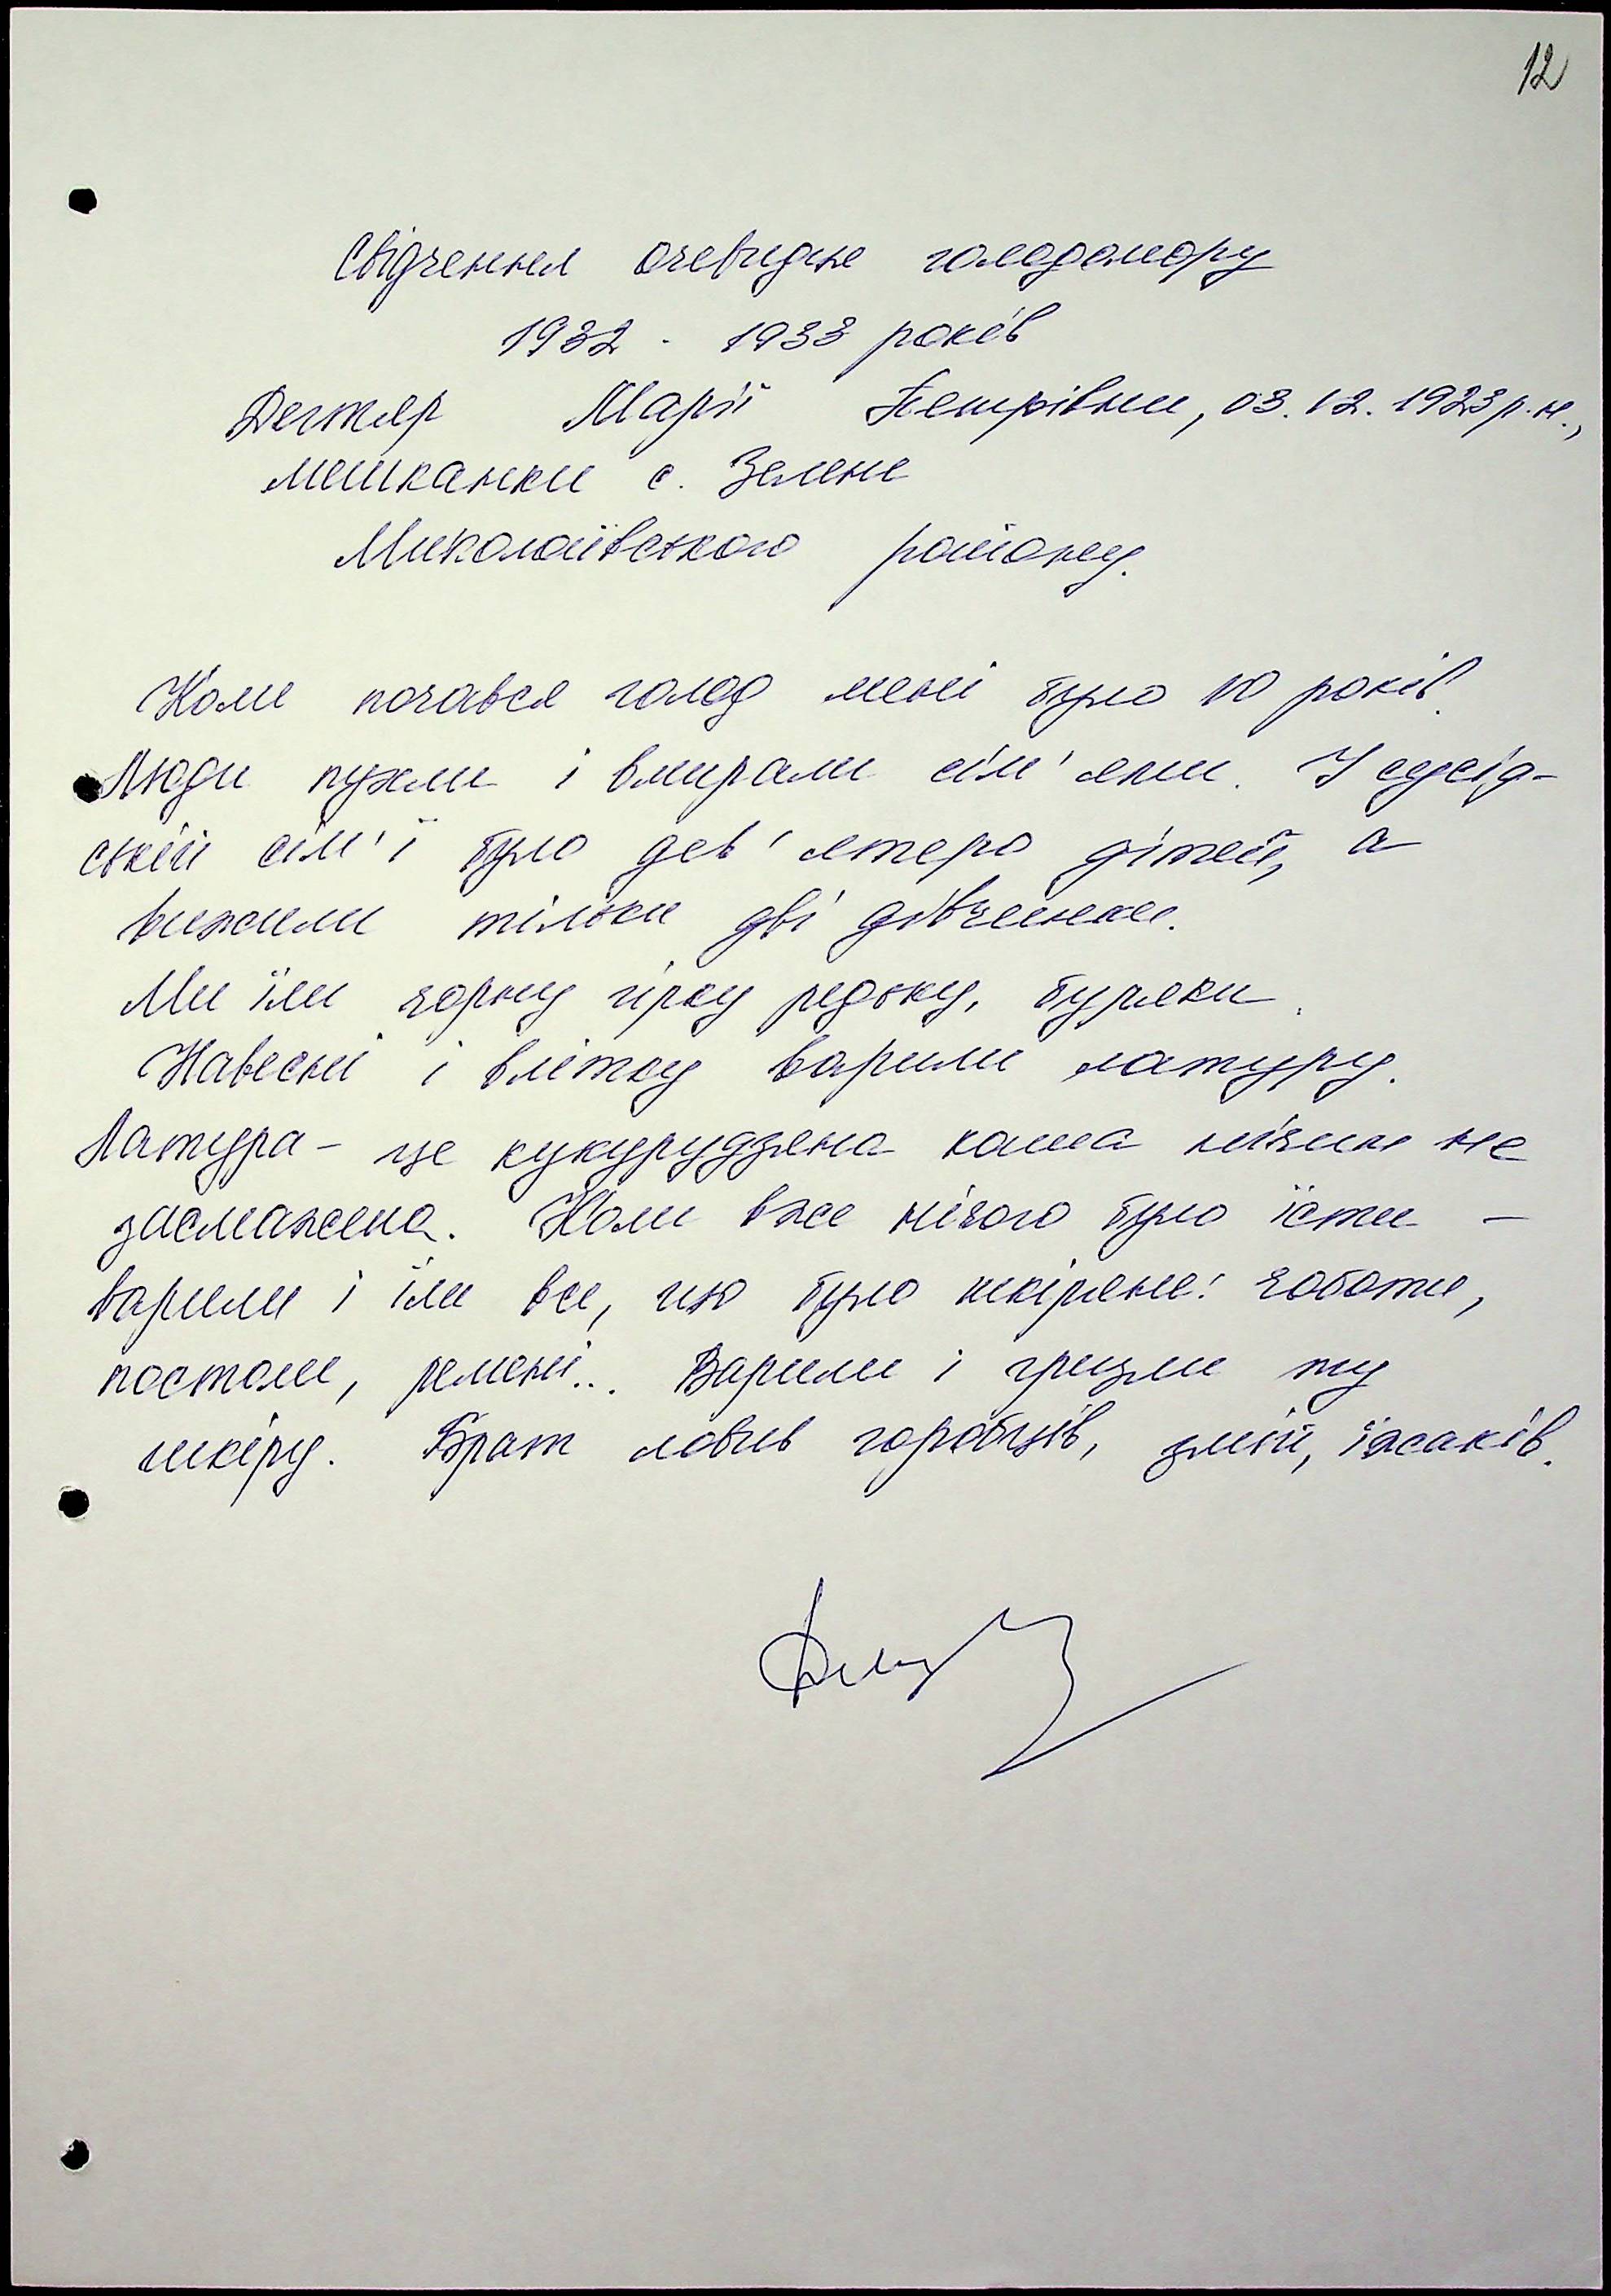 12
Свідчення очевидце голодомору
1932 - 1933 років
Дегтяр Марії Петрівни, 03.12.1923 р.н.,
мешканки с. Зелене
Миколаївського району.
Коли почався голод мені було 10 років.
Люди пухли і вмирали сім'ями. У сусід-
ській сім'ї було дев'ятеро дітей, а
вижили тільки дві дівчинки.
Ми їли чорну гірку редьку, буряки.
Навесні і влітку варили латуру.
Латура - це кукурудзяна каша нічим не
засмажена. Коли вже нічого було їсти -
варили і їли все, що було шкіряне: чоботи,
постоли, ремені... Варили і гризли ту
шкіру. Брат ловив горобців, змій, їжаків.